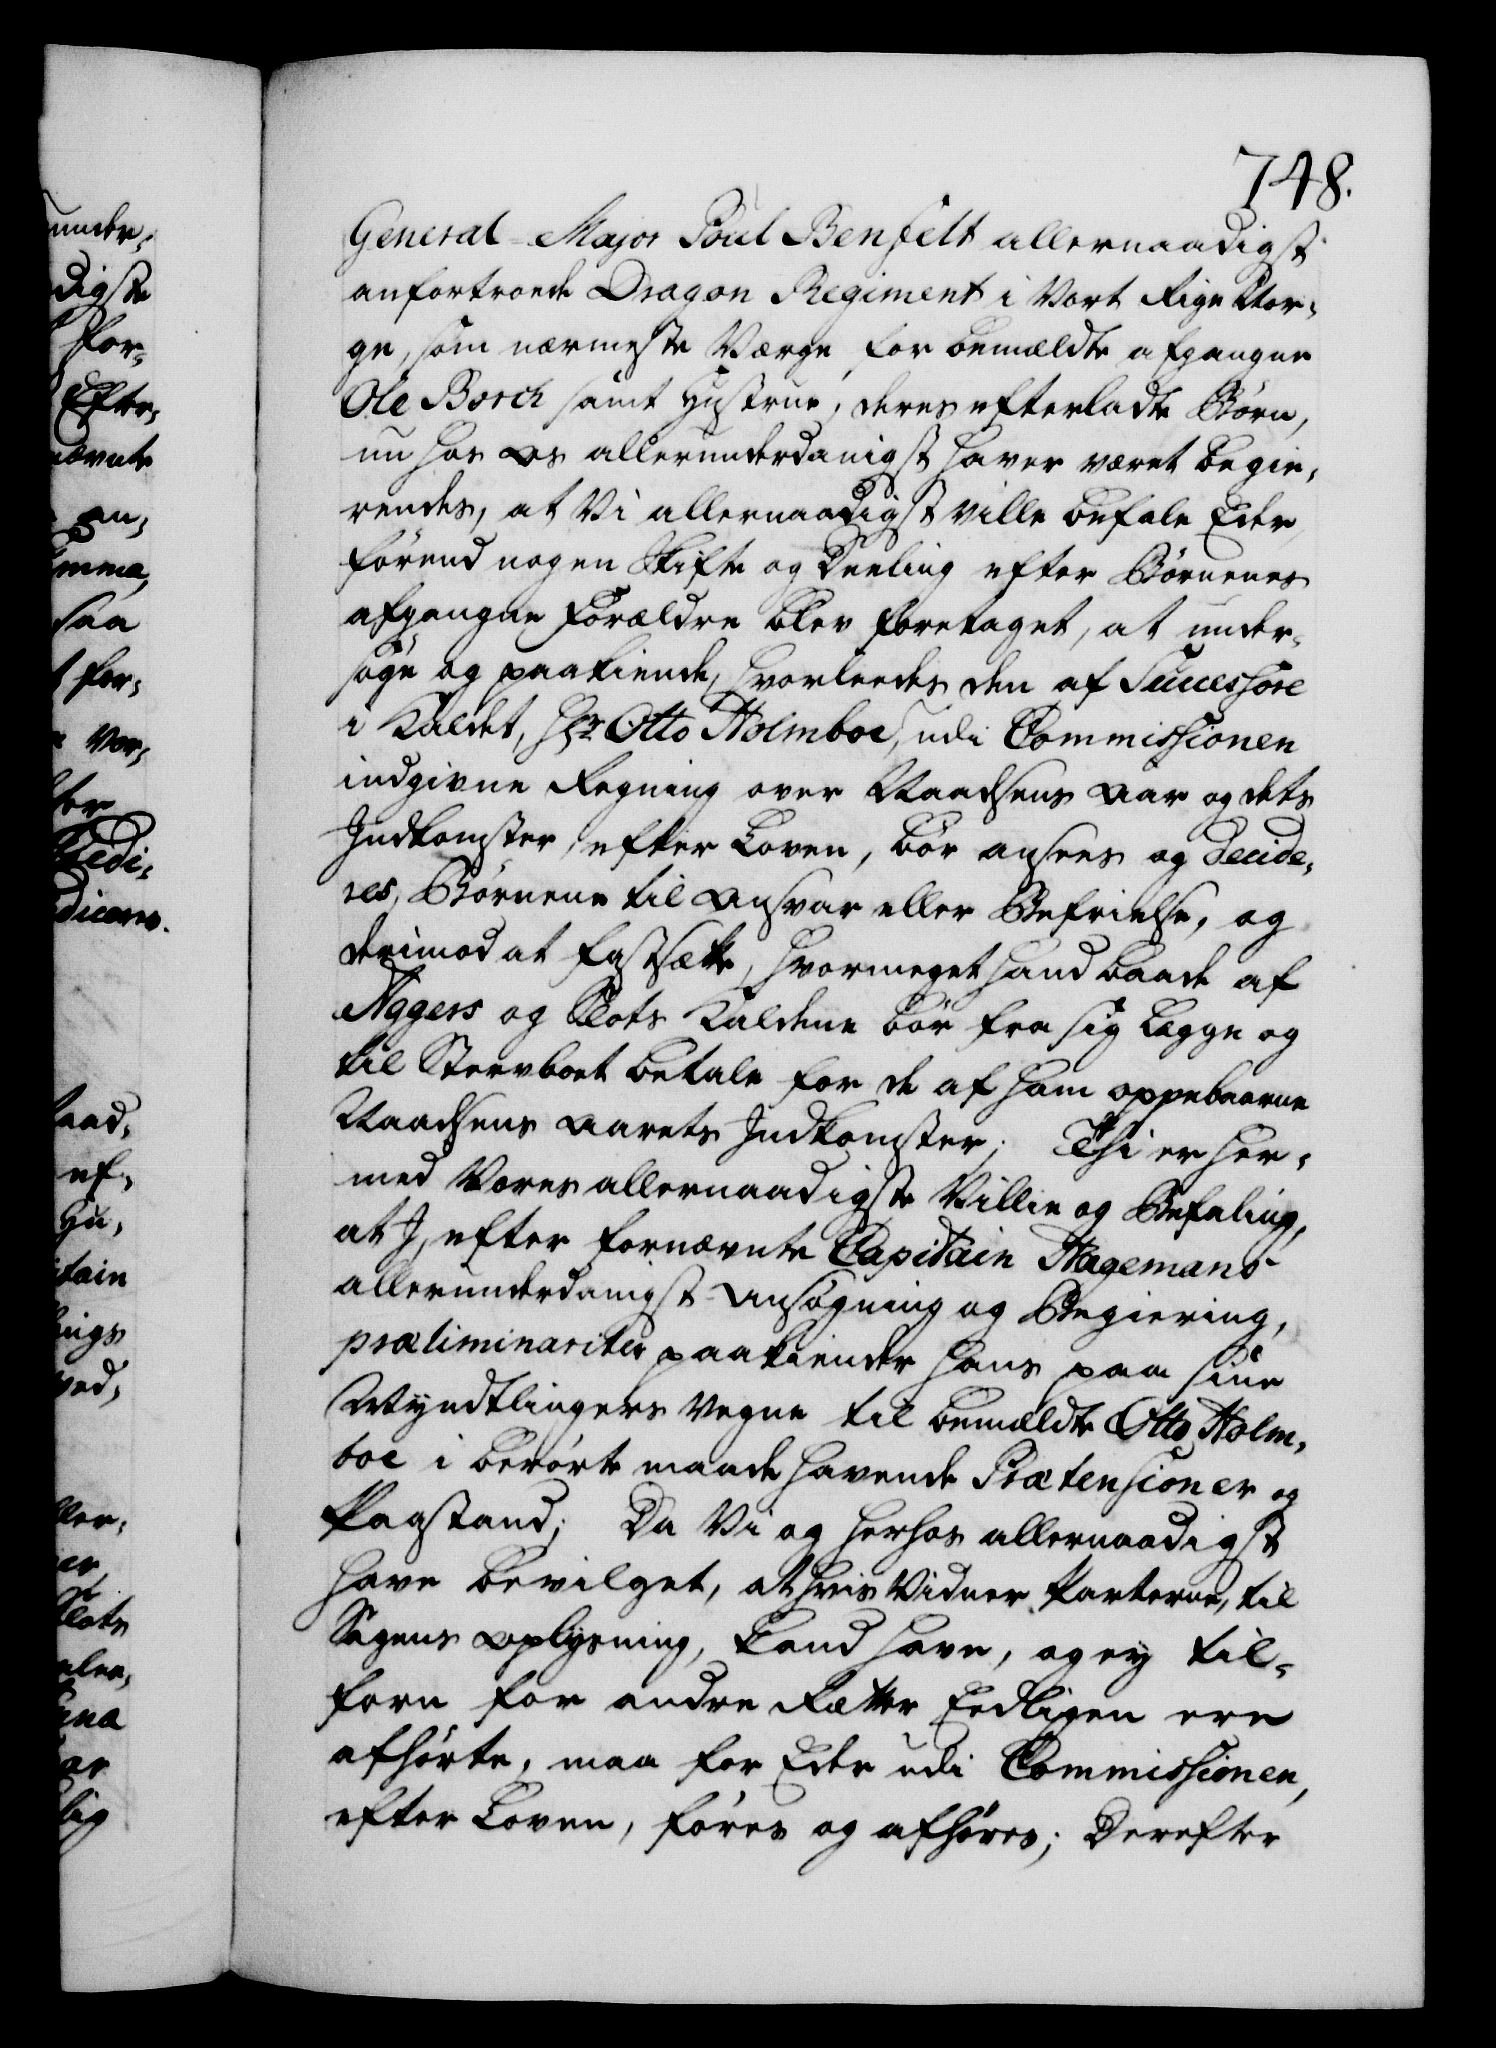 748.
General-Major Poul Benfelt allernaadigst
anfortroede Dragon Regiment i Vort Rige Nor-
ge, som nærmeste Værge for bemældte afgangne
Ole Borch samt Hustrue, deres efterladte Børn,
nu hos os allerunderdanigst haver været begie-
rendes, at Vi allernaadigst ville befale Eder,
førend nogen Skifte og Deeling efter Børnenes
afgangne Forældre blev foretaget, at under-
søge og paakiende, hvorleedes den af Successore
i Kaldet, Hr Otto Holmboe, udi Commissionen
indgivne Regning over Naadsens Aar og dets
Indkomster, efter Loven, bør ansees og decide-
res, Børnene til Ansvar eller Befrielse, og
derimod at fastsætte, hvormeget hand baade af
Aggers og Slots Kaldene bør fra sig legge og
til Sterboet betale for de af ham oppebaarne
Naadsens Aarets Indkomster; Thi er her-
med Vores allernaadigste Villie og Befaling,
at I, efter fornævnte Capitain Hagemans
allerunderdanigst Ansøgning og Begiering,
præliminariter paakiender hans paa sine
Myndtlingers Vegne til bemældte Otto Holm-
boe i berørte maade havende Prætensioner og
Paastand; Da Vi og herhos allernaadigst
have bevilget, at hvis Vidner Parterne, til
Sagens Oplysning, kand have, og ey til-
forn for andre Retter Eedligen ere
afhørte, maa for Eder udi Commissionen,
efter Loven, føres og afhøres; Derefter
under-
digste
for-
Efter-
nævnte
an-
saa
for-
Vor-
ter
ef-
Hu-
tain
ings
ved-
ller-
er
Slots
una
lig